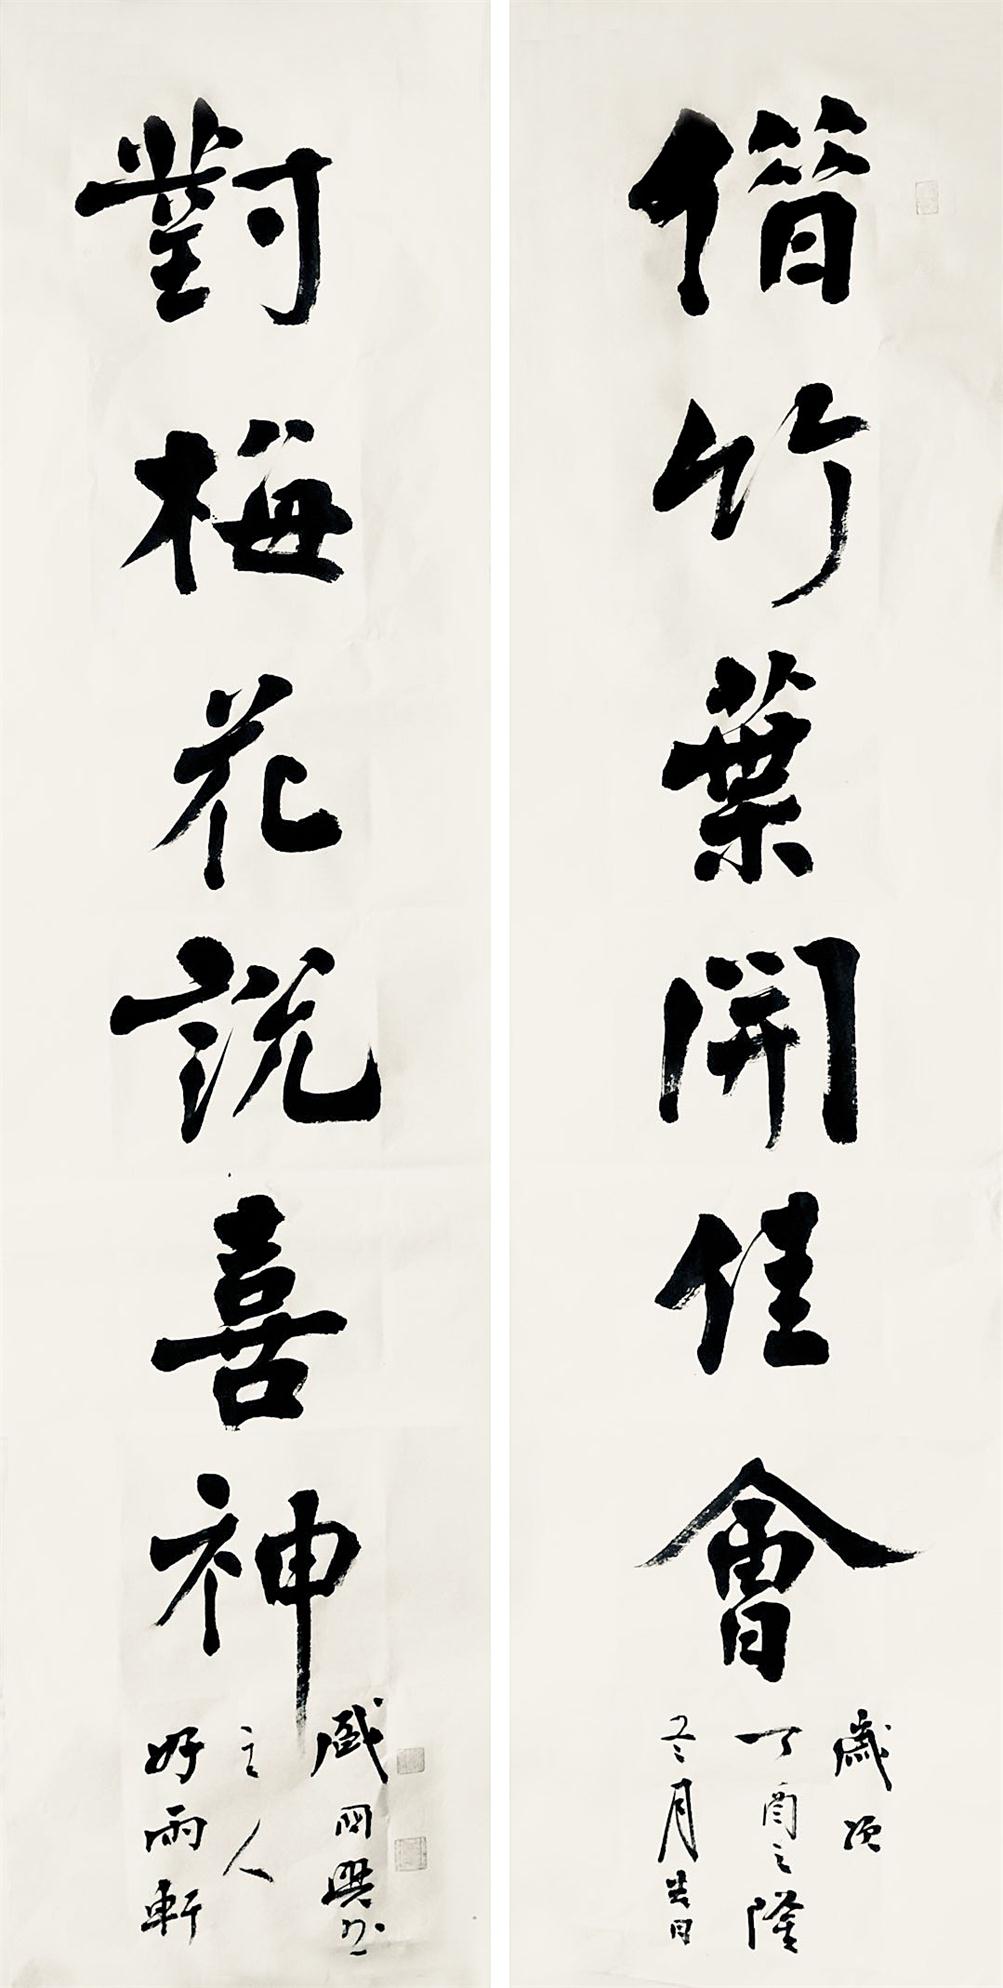 借竹葉開佳會
歲次
丁酉之隆
冬月吉日
對梅花說喜神
好雨軒
之人
戚國興书